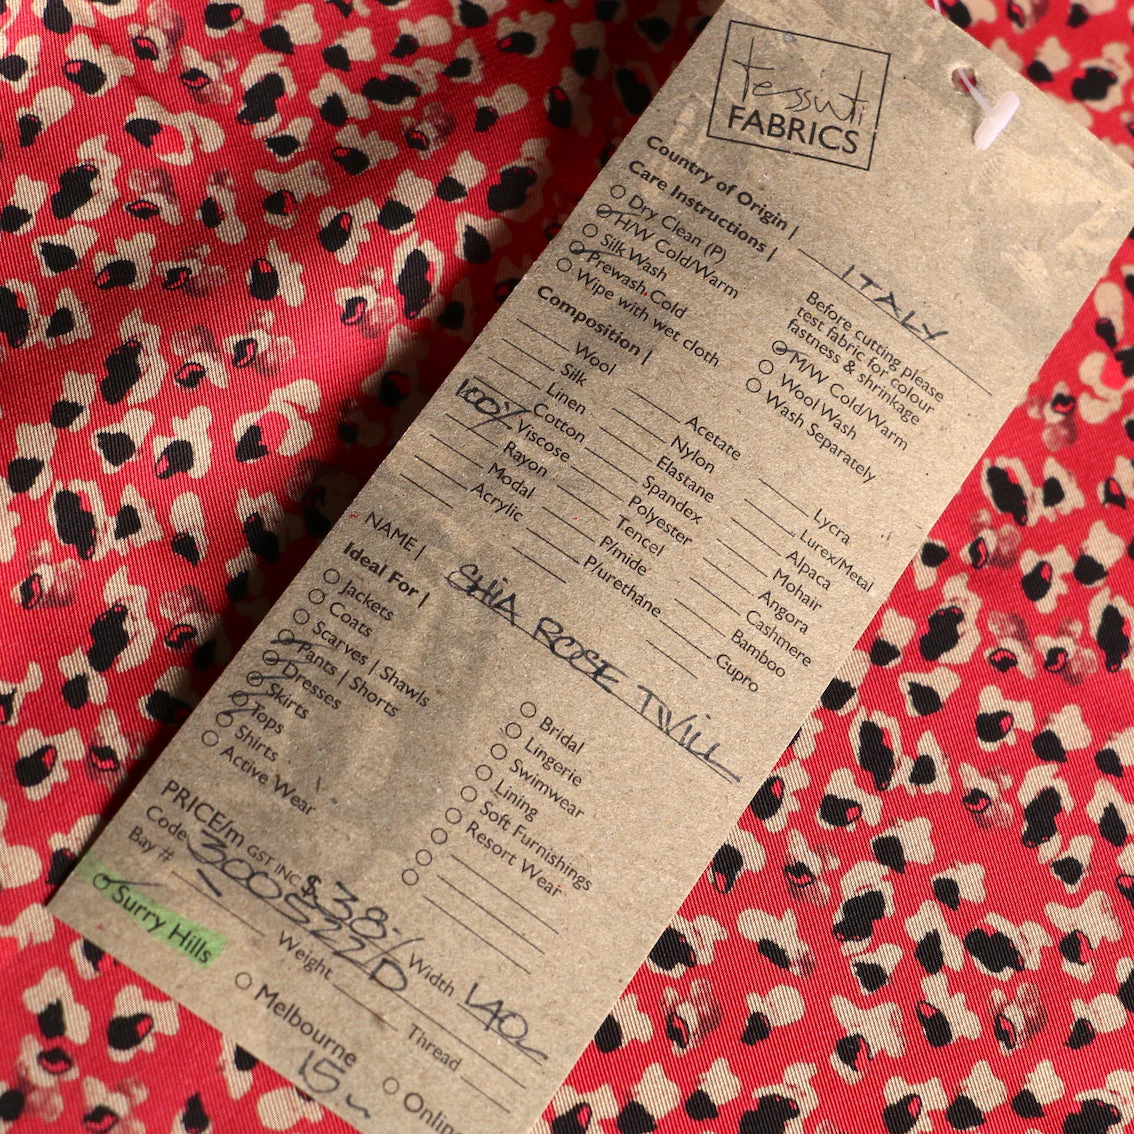 tessuti
FABRICS
Country of Origin | ITALY
Care Instructions |
Dry Clean (P)
H/W Cold/Warm
Silk Wash
Prewash Cold
Wipe with wet cloth
Before cutting please
test fabric for colour
fastness & shrinkage
M/W Cold/Warm
Wool Wash
Wash Separately
Composition |
Wool
Silk
Linen
Cotton
100% Viscose
Rayon
Modal
Acrylic
Acetate
Nylon
Elastane
Spandex
Polyester
Tencel
P/mide
P/urethane
Lycra
Lurex/Metal
Alpaca
Mohair
Angora
Cashmere
Bamboo
Cupro
NAME | SHIA ROSE TWILL
Ideal For |
Jackets
Coats
Scarves | Shawls
Pants | Shorts
Dresses
Skirts
Tops
Shirts
Active Wear
Bridal
Lingerie
Swimwear
Lining
Soft Furnishings
Resort Wear
PRICE/m GST INC $38.- / Width 140
Code 300522D
Bay # Weight Thread
Surry Hills
Melbourne
Online